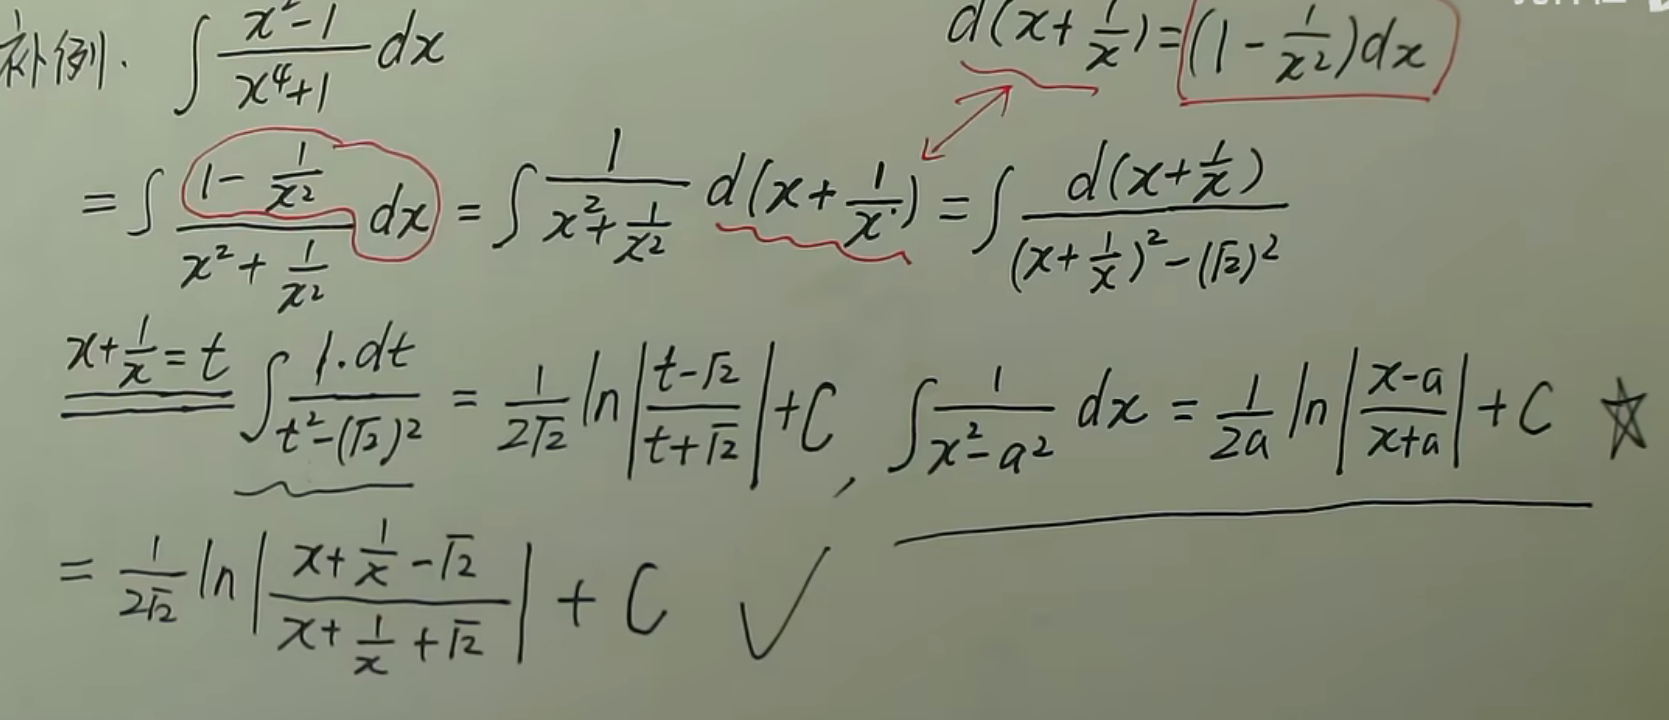 补例. ∫ (x²-1)/(x⁴+1) dx    d(x+1/x)=(1-1/x²)dx
= ∫ (1-1/x²)/(x²+1/x²) dx = ∫ 1/(x²+1/x²) d(x+1/x) = ∫ d(x+1/x)/((x+1/x)²-(√2)²)
x+1/x=t ∫ 1·dt/(t²-(√2)²) = 1/(2√2) ln|(t-√2)/(t+√2)|+C, ∫ 1/(x²-a²) dx = 1/(2a) ln|(x-a)/(x+a)|+C ☆
= 1/(2√2) ln|(x+1/x-√2)/(x+1/x+√2)| + C ✓